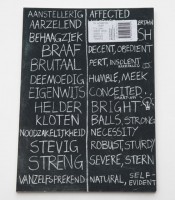 AANSTELLERIG AFFECTED
AARZELEND
BEHAAGZIEK
BRAAF DECENT, OBEDIENT
BRUTAAL PERT, INSOLENT
DEEMOEDIG HUMBLE, MEEK
EIGENWIJS CONCEITED
HELDER BRIGHT
KLOTEN BALLS, STRONG
NOODZAKELIJKHEID NECESSITY
STEVIG ROBUST, STURDY
STRENG SEVERE, STERN
VANZELFSPREKEND NATURAL, SELF-EVIDENT